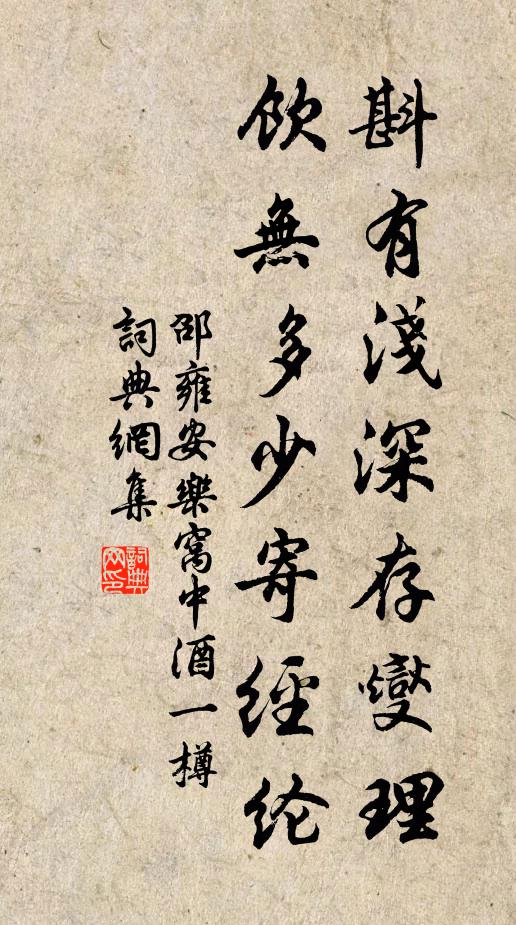 斟有淺深存燮理
飲無多少寄經纶
邵雍安樂窩中酒一樽
詞典網集
詞典網印